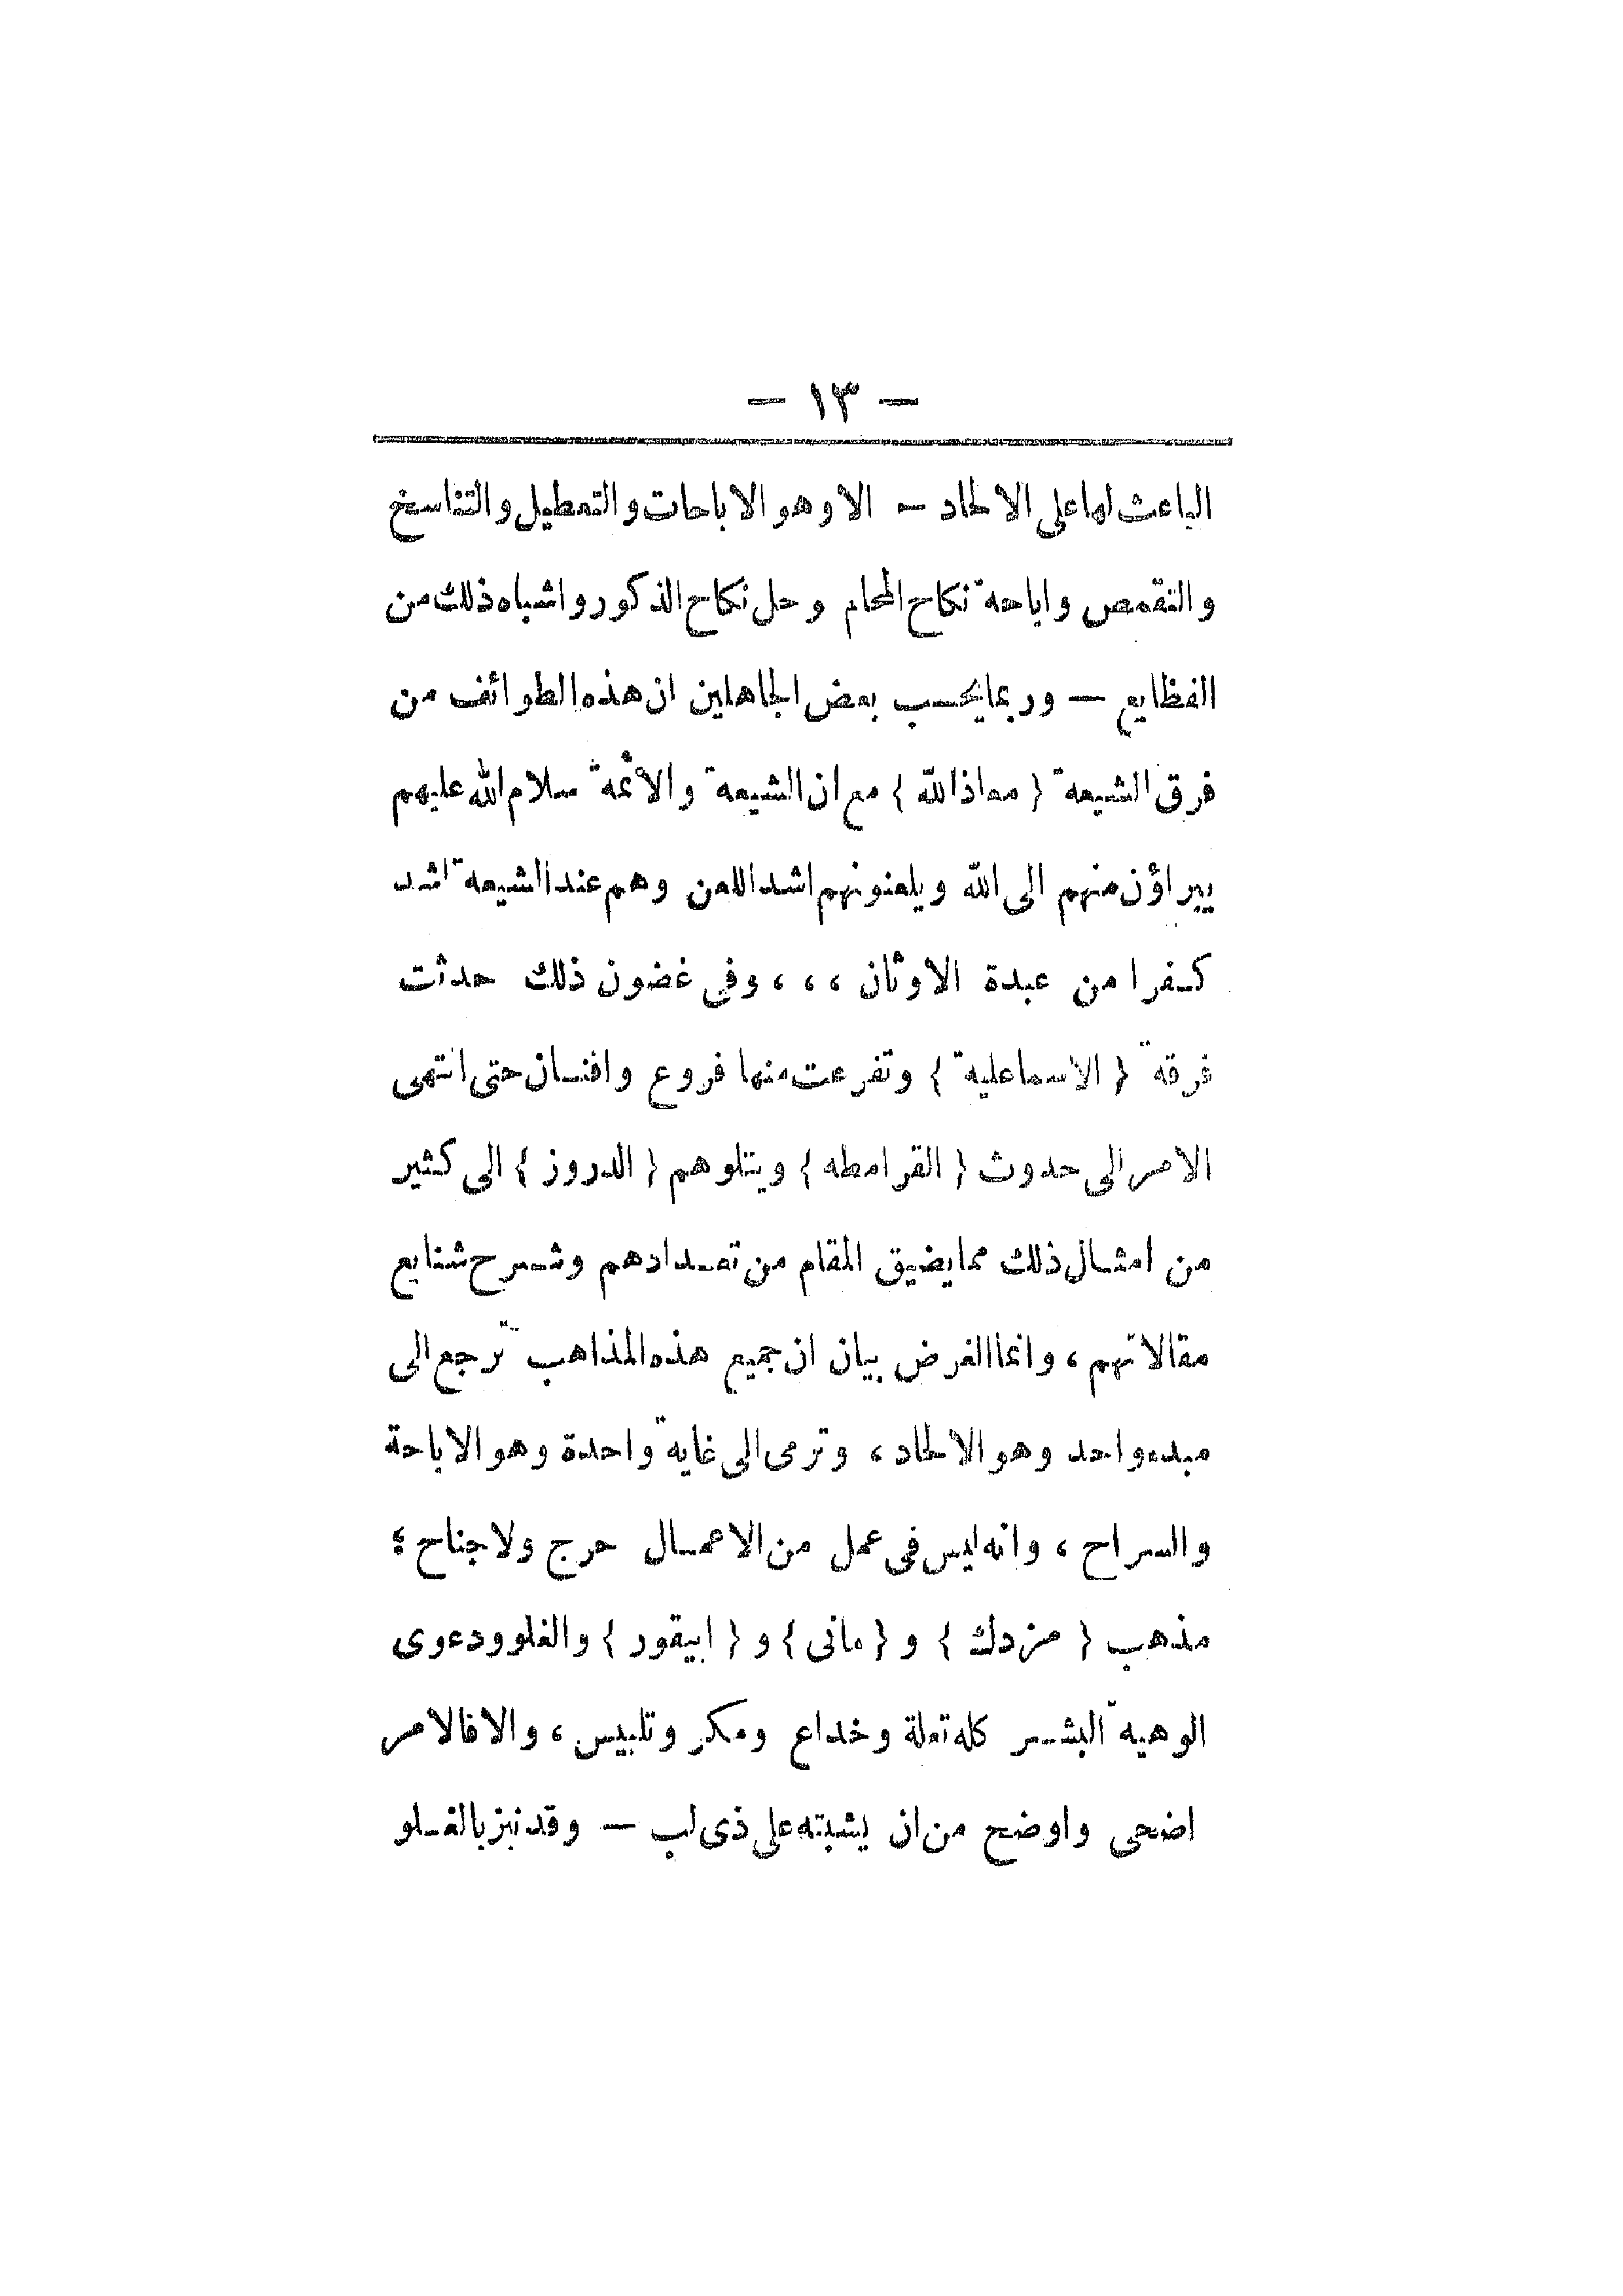 — ١٣ —
الباعث لها على الالحاد — الا وهو الاباحات والتعطيل والتناسخ
والتقمص واباحة نكاح المحام وحل نكاح الذكور واشباه ذلك من
الفظايع — وربما يحسب بعض الجاهلين ان هذه الطوائف من
فرق الشيعة { معاذ الله } مع ان الشيعة والأئمة سلام الله عليهم
يبراؤن منهم الى الله ويلعنونهم اشد اللعن وهم عند الشيعة اشد
كفرا من عبدة الاوثان ،،، وفي غضون ذلك حدثت
فرقة { الاسماعلية } وتفرعت منها فروع وافنان حتى انتهى
الامر الى حدوث { القرامطه } ويتلوهم { الدروز } الى كثير
من امثال ذلك مما يضيق المقام من تعدادهم وشرح شنايع
مقالاتهم ، وانما الغرض بيان ان جميع هذه المذاهب ترجع الى
مبدء واحد وهو الالحاد ، وترمى الى غاية واحدة وهو الاباحة
والسراح ، وانه ليس في عمل من الاعمال حرج ولا جناح ؛
مذهب { مزدك } و { مانى } و { ابيقور } والغلو ودعوى
الوهية البشر كله تعلة وخداع ومكر وتلبيس ، والا فالامر
اضحى واوضح من ان يشبته على ذى لب — وقد نبز بالغلو